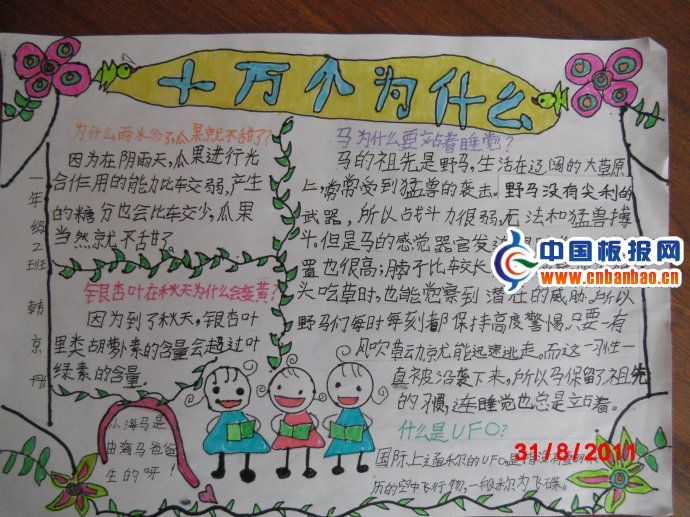 十万个为什么
为什么雨水多了瓜果就不甜了?
因为在阴雨天,瓜果进行光
合作用的能力比车交弱,产生
的糖分也会比车交少,瓜果
当然就不甜了。
银杏叶在秋天为什么会变黄?
因为到了秋天,银杏叶
里类胡萝卜素的含量会超过叶
绿素的含量。
一年级2班 韩京丹
小海马是
由海马爸爸
生的呀!
马为什么要站着睡觉?
马的祖先是野马,生活在辽阔的大草原
上,常常受到猛兽的袭击。野马没有尖利的
武器,所以占战斗力很弱,无法和猛兽搏
斗。但是马的感觉器官发达
置也很高;脖子比车交长
头吃草时,也能觉察到潜在的威胁。所以
野马们每时每刻都保持高度警惕,只要一有
风吹草动就能迅速逃走。而这一习性一
直被沿袭下来,所以马保留了祖先
的习惯,连睡觉也总是立占着。
什么是UFO?
国际上通称的UFO是
历的空中飞行物,一般称为飞碟。
中国板报网
www.cnbanbao.cn
31/8/2011